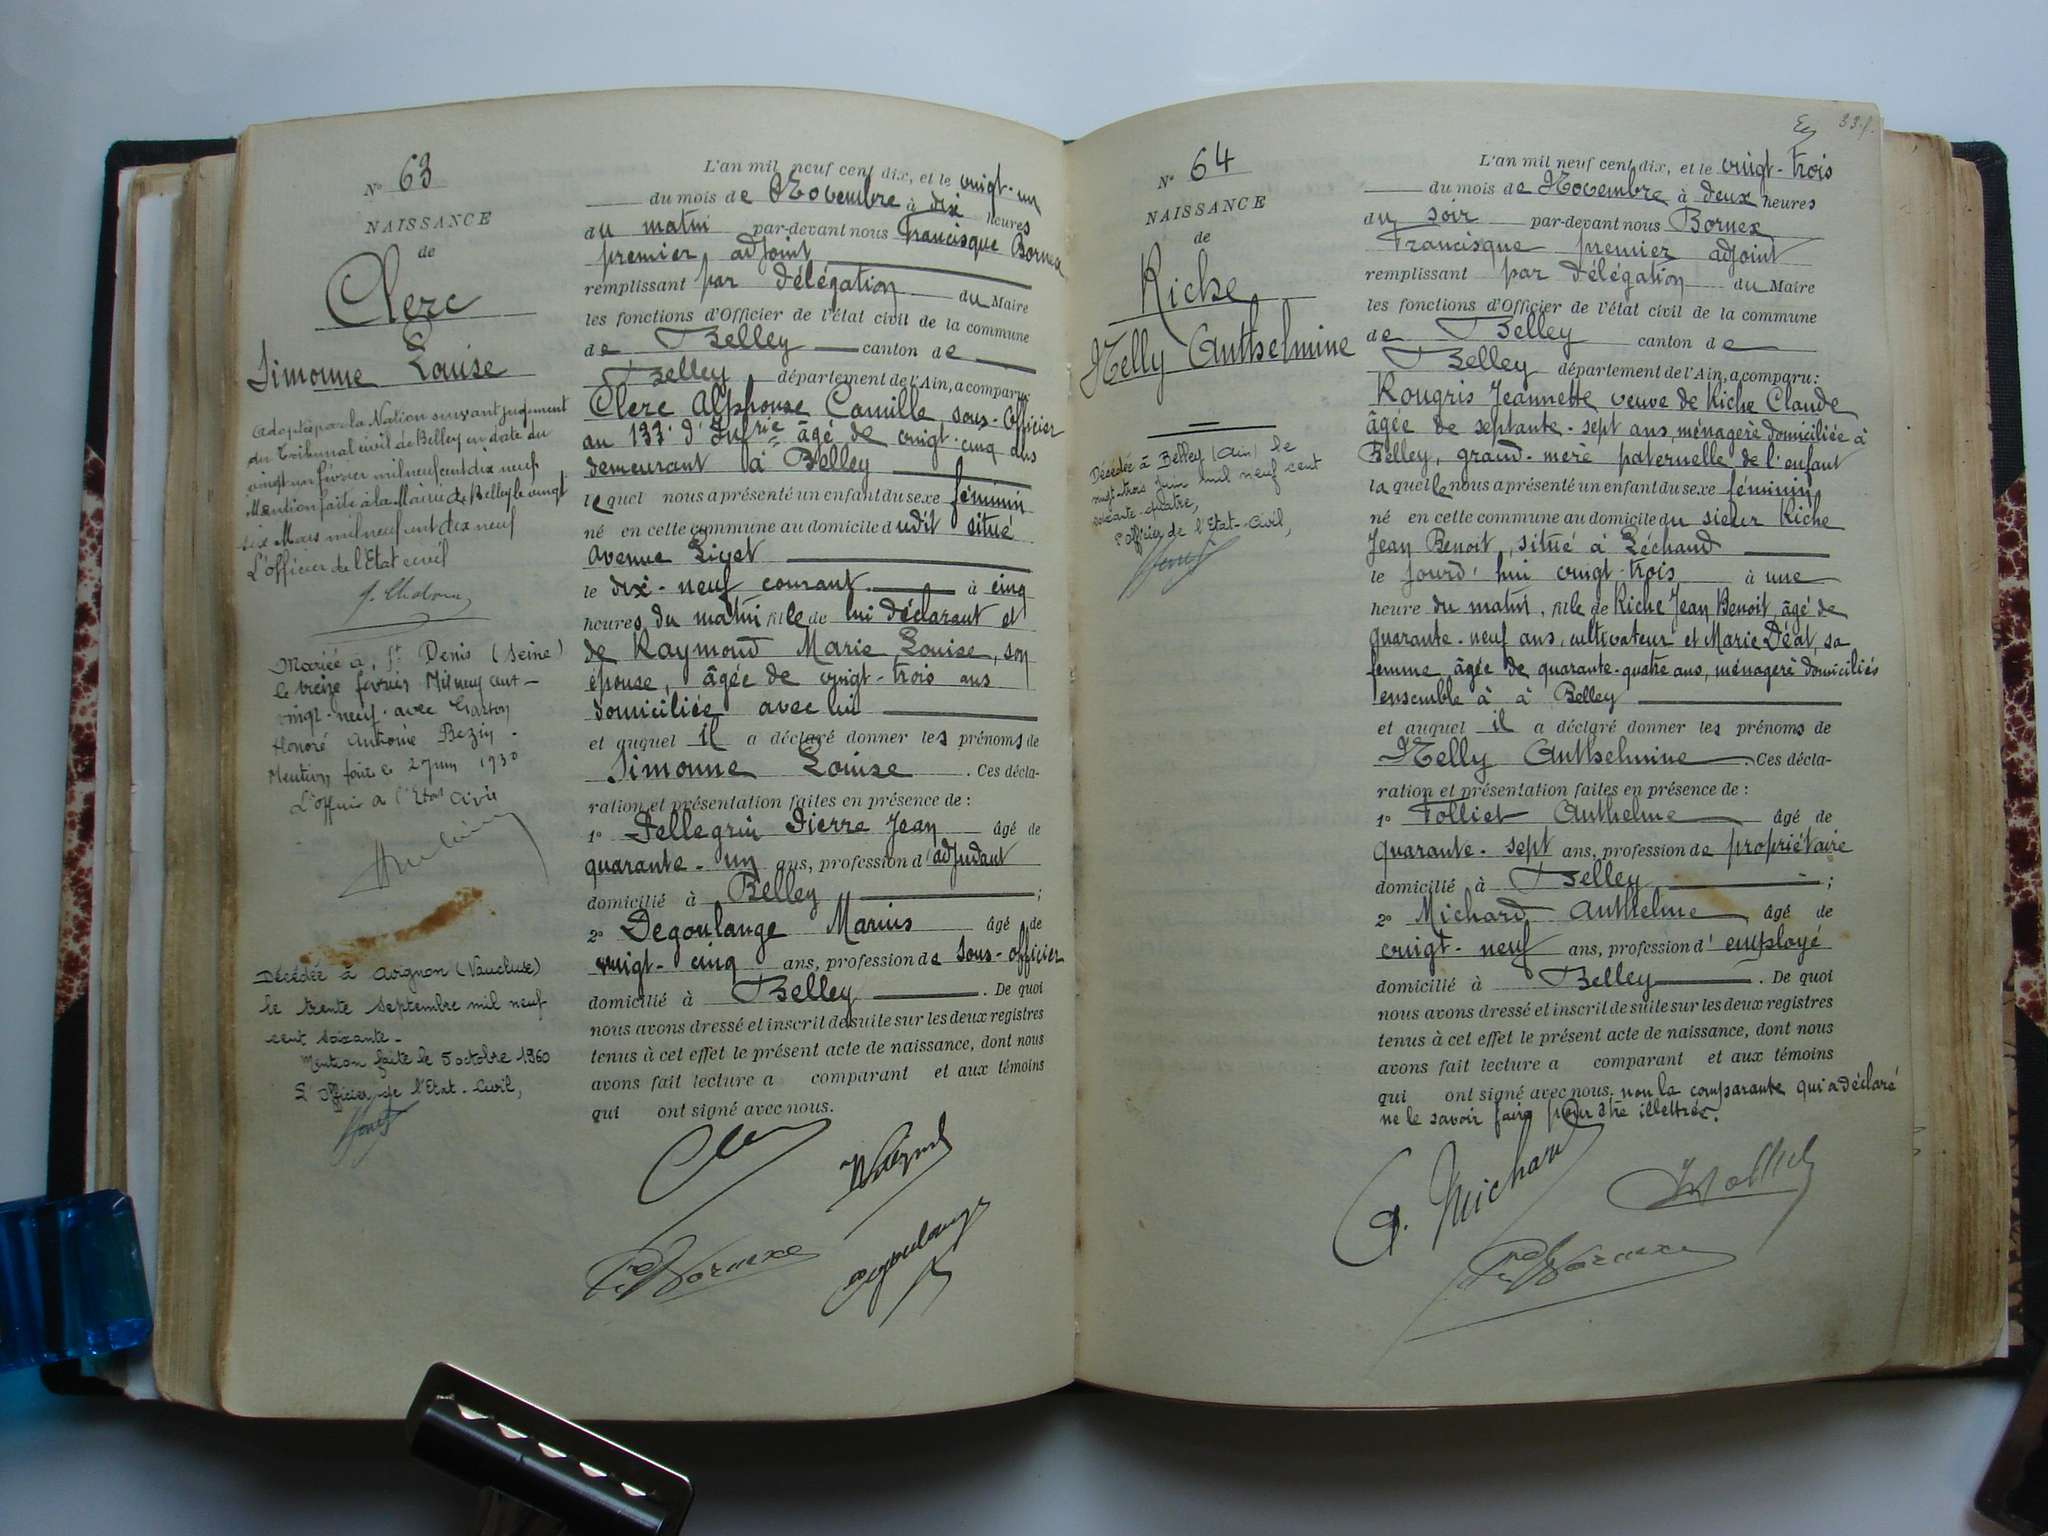 N° 63
NAISSANCE
de
Clerc
Simonne Louise
Adoptée par la Nation suivant jugement
du Tribunal civil de Belley en date du
vingt un février mil neuf cent dix neuf
Mention faite à la Mairie de Belley le vingt
six Mars mil neuf cent dix neuf
L'officier de l'Etat civil
Mariée à St Denis (Seine)
le treize février Mil neuf cent
vingt-neuf avec Gaston
Honoré Antoine Bezin.
Mention faite le 2 Juin 1930
L'Officier de l'Etat Civil
Décédée à Avignon (Vaucluse)
le trente septembre mil neuf
cent soixante.
Mention faite le 5 octobre 1960
L'Officier de l'Etat-Civil,
L'an mil neuf cent dix, et le vingt-un
du mois de Novembre à dix heures
du matin par-devant nous Francisque Bornex
premier adjoint
remplissant par délégation du Maire
les fonctions d'Officier de l'état civil de la commune
de Belley canton de
Belley département de l'Ain, a comparu:
Clerc Alphonse Camille sous-Officier
au 133e d'Infrie âgé de vingt-cinq ans
demeurant à Belley
lequel nous a présenté un enfant du sexe féminin
né en cette commune au domicile dudit situé
Avenue Liget
le dix-neuf courant à cinq
heures du matin fille de lui déclarant et
de Raymond Marie Louise, son
épouse, âgée de vingt-trois ans
domiciliée avec lui
et auquel il a déclaré donner les prénoms de
Simonne Louise. Ces décla-
ration et présentation faites en présence de :
1° Pellegrin Pierre Jean âgé de
quarante-un ans, profession d'adjudant
domicilié à Belley ;
2° Degoulange Marius âgé de
vingt-cinq ans, profession de sous-officier
domicilié à Belley. De quoi
nous avons dressé et inscrit de suite sur les deux registres
tenus à cet effet le présent acte de naissance, dont nous
avons fait lecture a comparant et aux témoins
qui ont signé avec nous.
Clerc
Degoulange
Bornex
N° 64
NAISSANCE
de
Riche
Nelly Anthelmine
Décédée à Belley (Ain) le
vingt-trois juin mil neuf cent
soixante-quatre,
l'Officier de l'Etat-Civil,
L'an mil neuf cent dix, et le vingt-trois
du mois de Novembre à deux heures
du soir par-devant nous Bornex
Francisque premier adjoint
remplissant par délégation du Maire
les fonctions d'Officier de l'état civil de la commune
de Belley canton de
Belley département de l'Ain, a comparu:
Rougris Jeannette veuve de Riche Claude
âgée de septante-sept ans, ménagère domiciliée à
Belley, grand-mère paternelle de l'enfant
laquelle nous a présenté un enfant du sexe féminin
né en cette commune au domicile du sieur Riche
Jean Benoit, situé à Léchaud
le jourd'hui vingt-trois à une
heure du matin, fille de Riche Jean Benoit, âgé de
quarante-neuf ans, cultivateur et Marie Déat, sa
femme âgée de quarante-quatre ans, ménagère domiciliés
ensemble à à Belley
et auquel il a déclaré donner les prénoms de
Nelly Anthelmine. Ces décla-
ration et présentation faites en présence de :
1° Folliet Anthelme âgé de
quarante-sept ans, profession de propriétaire
domicilié à Belley ;
2° Michard Anthelme âgé de
vingt-neuf ans, profession d'employé
domicilié à Belley. De quoi
nous avons dressé et inscrit de suite sur les deux registres
tenus à cet effet le présent acte de naissance, dont nous
avons fait lecture a comparant et aux témoins
qui ont signé avec nous, non la comparante qui a déclaré
ne le savoir faire pour être illettrée.
A. Michard
Folliet
Bornex